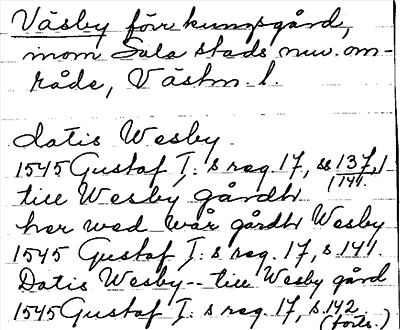 Väsby förr kungsgård,
inom Sala stads nuv. om-
råde, Västm. l.
datis Wesby
1545 Gustaf I: s reg. 17, ss 137, 1
141.
till Wesby gårdh
her wed wår gårdh Wesby
1545 Gustaf I: s reg. 17, s 141.
Datis Wesby -- till Wesby gård
1545 Gustaf I: s reg. 17, s 142
(forts.)